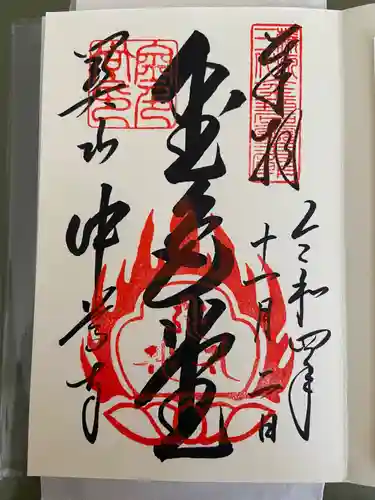 奉拝
令和四年
十一月二日
金色堂
関山
中尊寺